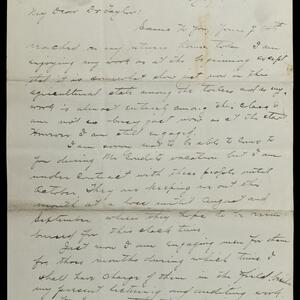 My Dear Dr Taylor:
Came to you June 9th
reached on my return home today I am
enjoying my work as at the beginning except
that it is somewhat slow just now in this
agricultural state among the and as my
work is almost entirely among this class I
am not so busy just now as at the start
However I am still engaged.
I am sorry not to be able to come to
you during Mr vacation but I am
under contract with these people until
October. They are keeping us out this
month at a loss until August and
September when they hope to be reim
bursed for this slack time
Just now I am engaging men for them
for those months during which time I
shall have charge of them in the field, besides
my present listening and auditing work